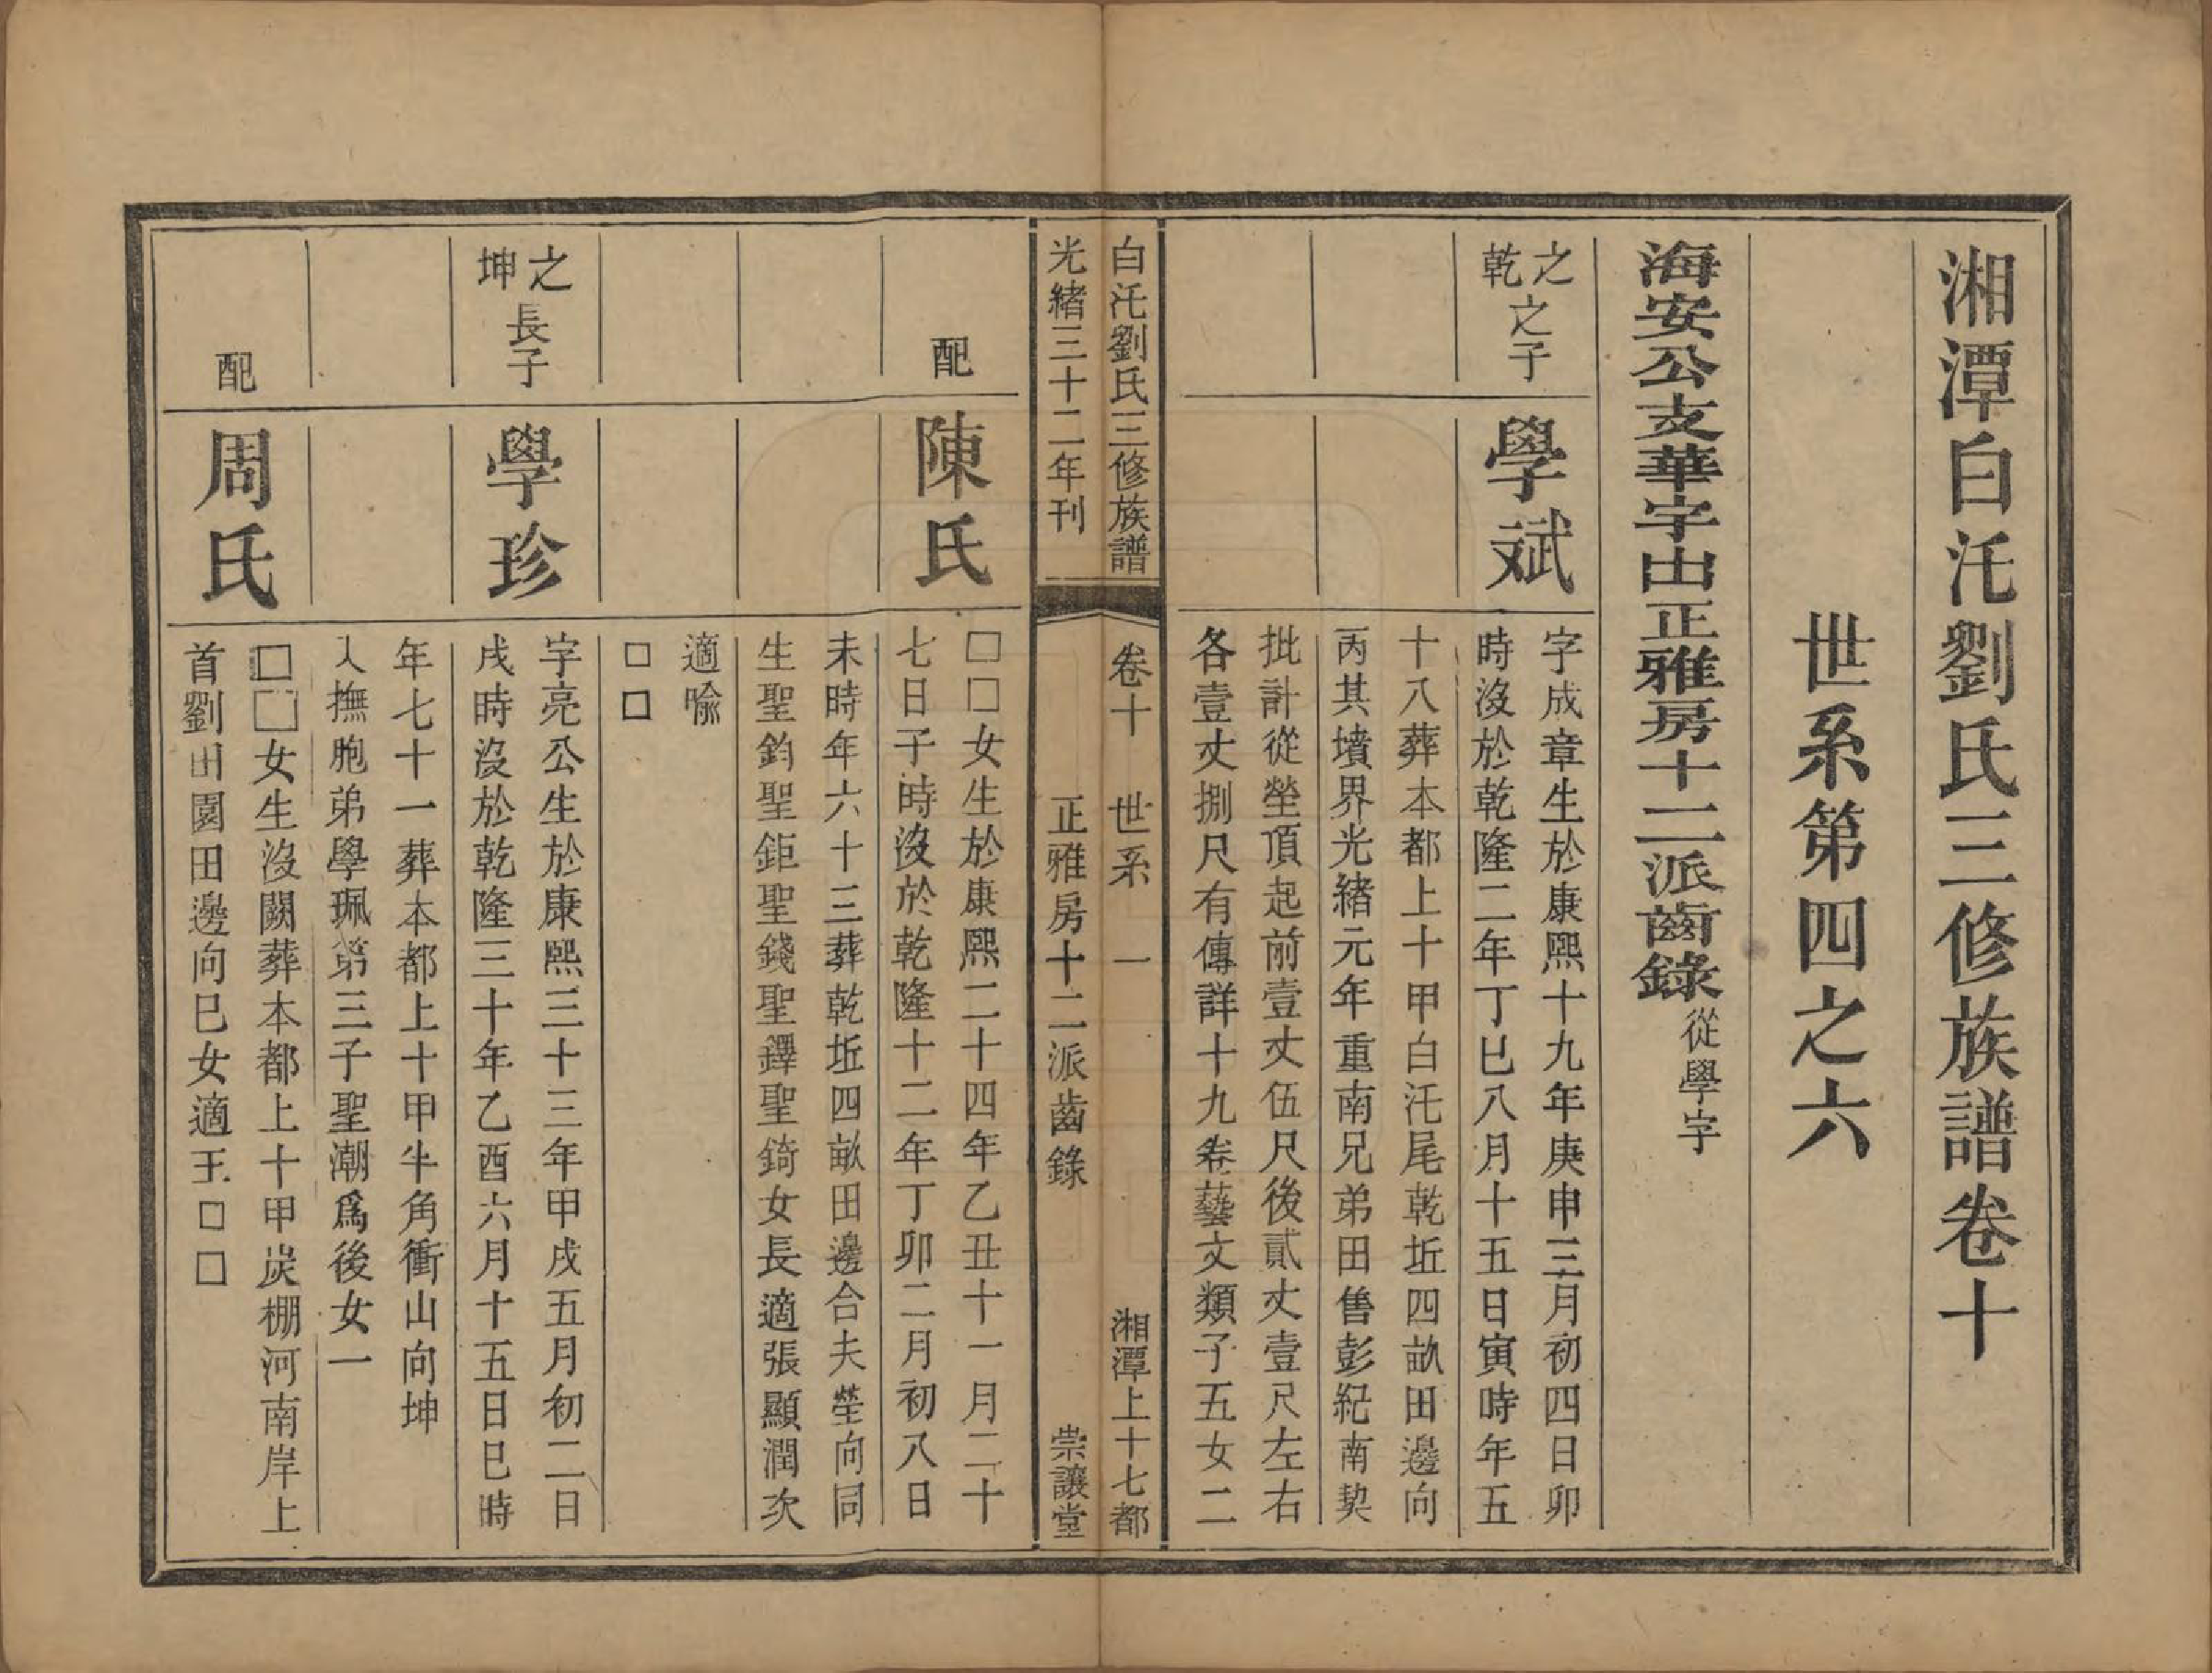 湘潭白汑劉氏三修族譜卷十
世系第四之六
海安公支華字山正雅房十二派齒錄從學字
之乾之子
學斌
字成章生於康熙十九年庚申三月初四日卯
時沒於乾隆二年丁巳八月十五日寅時年五
十八葬本都上十甲白汑尾乾坵四畝田邊向
丙其墳界光緒元年重南兄弟田售彭紀南契
批計從塋頂起前壹丈伍尺後貳丈壹尺左右
各壹丈捌尺有傳詳十九卷藝文類子五女二
白汑劉氏三修族譜
卷十 世系 一
湘潭上十七都
光緒三十二年刊
正雅房十二派齒錄
崇讓堂
配
陳氏
□□女生於康熙二十四年乙丑十一月二十
七日子時沒於乾隆十二年丁卯二月初八日
未時年六十三葬乾坵四畝田邊合夫塋向同
生聖鈞聖鉅聖錢聖鐸聖錡女長適張顯潤次
適喩
□□
之坤長子
學珍
字亮公生於康熙三十三年甲戌五月初二日
戌時沒於乾隆三十年乙酉六月十五日巳時
年七十一葬本都上十甲牛角衝山向坤
入撫胞弟學珮第三子聖潮爲後女一
配
周氏
□□女生沒闕葬本都上十甲炭棚河南岸上
首劉田園田邊向巳女適王□□